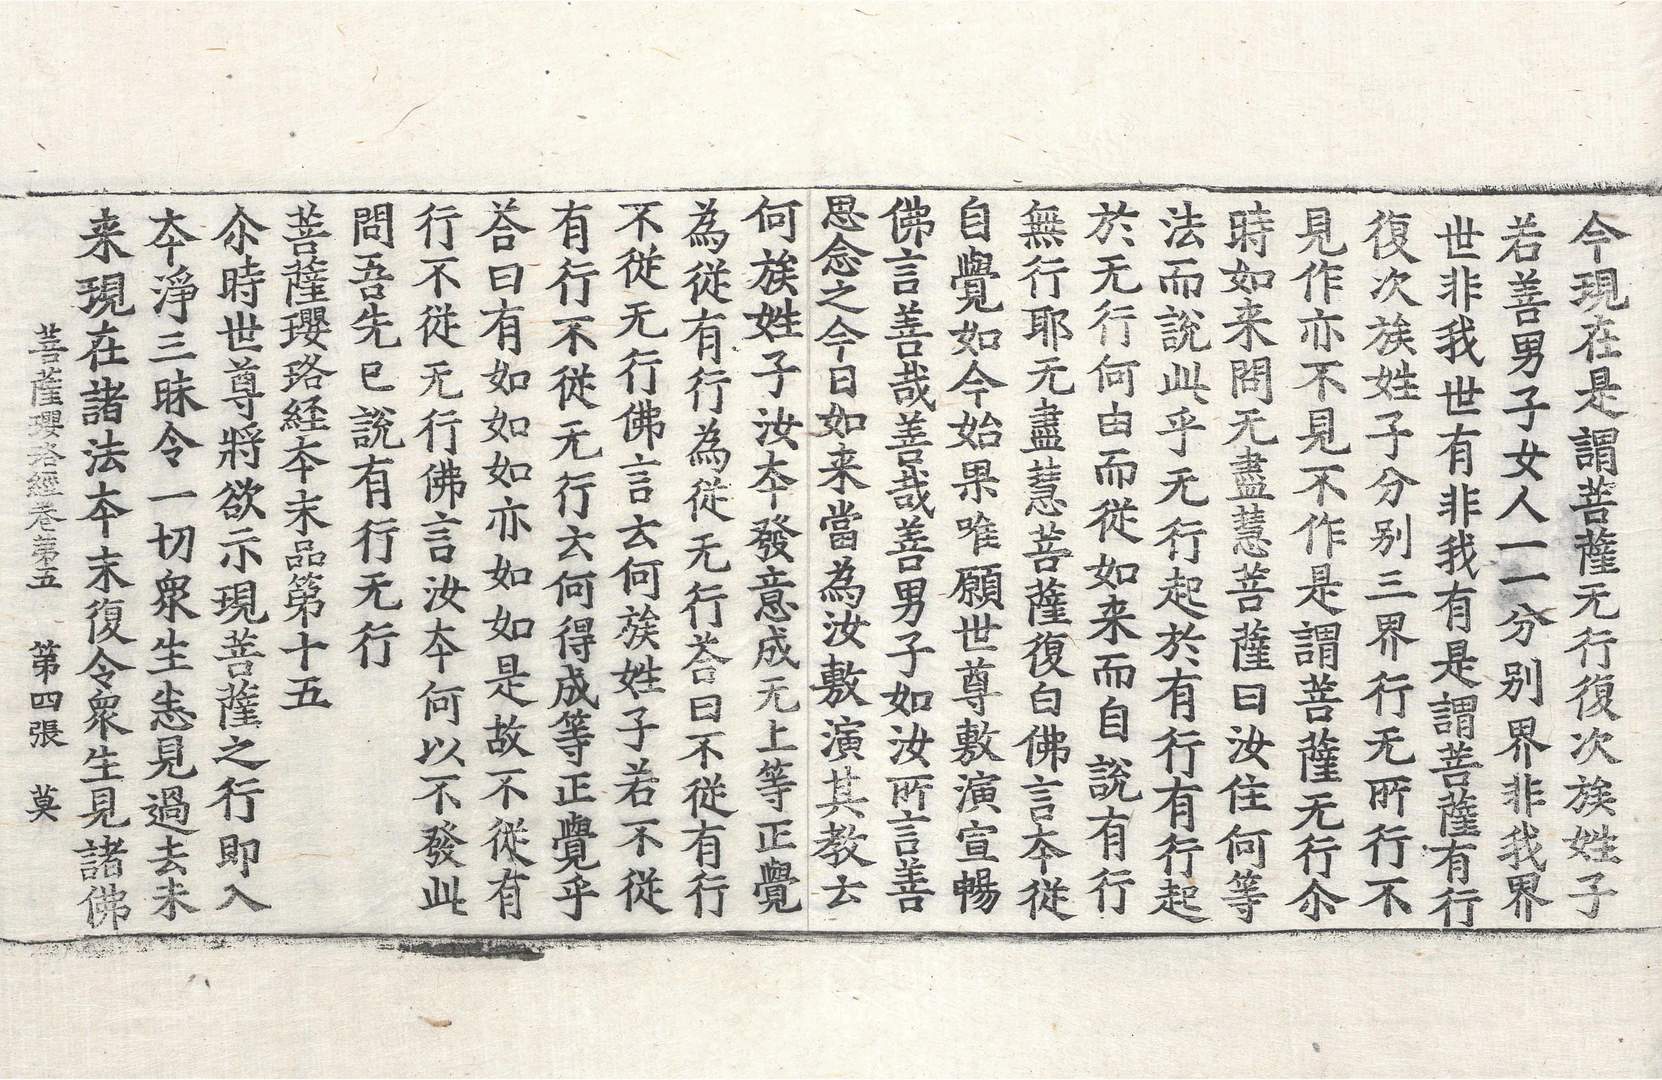 今現在是謂菩薩无行復次族姓子
若善男子女人一一分别界非我界
世非我世有非我有是謂菩薩有行
復次族姓子分别三界行无所行不
見作亦不見不作是謂菩薩无行尒
時如来問无盡慧菩薩曰汝住何等
法而說此乎无行起於有行有行起
於无行何由而從如来而自說有行
無行耶无盡慧菩薩復白佛言夲從
自覺如今始果唯願世尊敷演宣暢
佛言善哉善哉善男子如汝所言善
思念之今日如来當為汝敷演其教云
何族姓子汝夲發意成无上等正覺
為從有行為從无行荅曰不從有行
不從无行佛言云何族姓子若不從
有行不從无行云何得成等正覺乎
荅曰有如如如亦如如是故不從有
行不從无行佛言汝夲何以不發此
問吾先已說有行无行
菩薩瓔珞經夲末品第十五
尒時世尊將欲示現菩薩之行即入
夲淨三昧令一切衆生悉見過去未
来現在諸法夲末復令衆生見諸佛
菩薩瓔珞經卷第五 第四張 莫